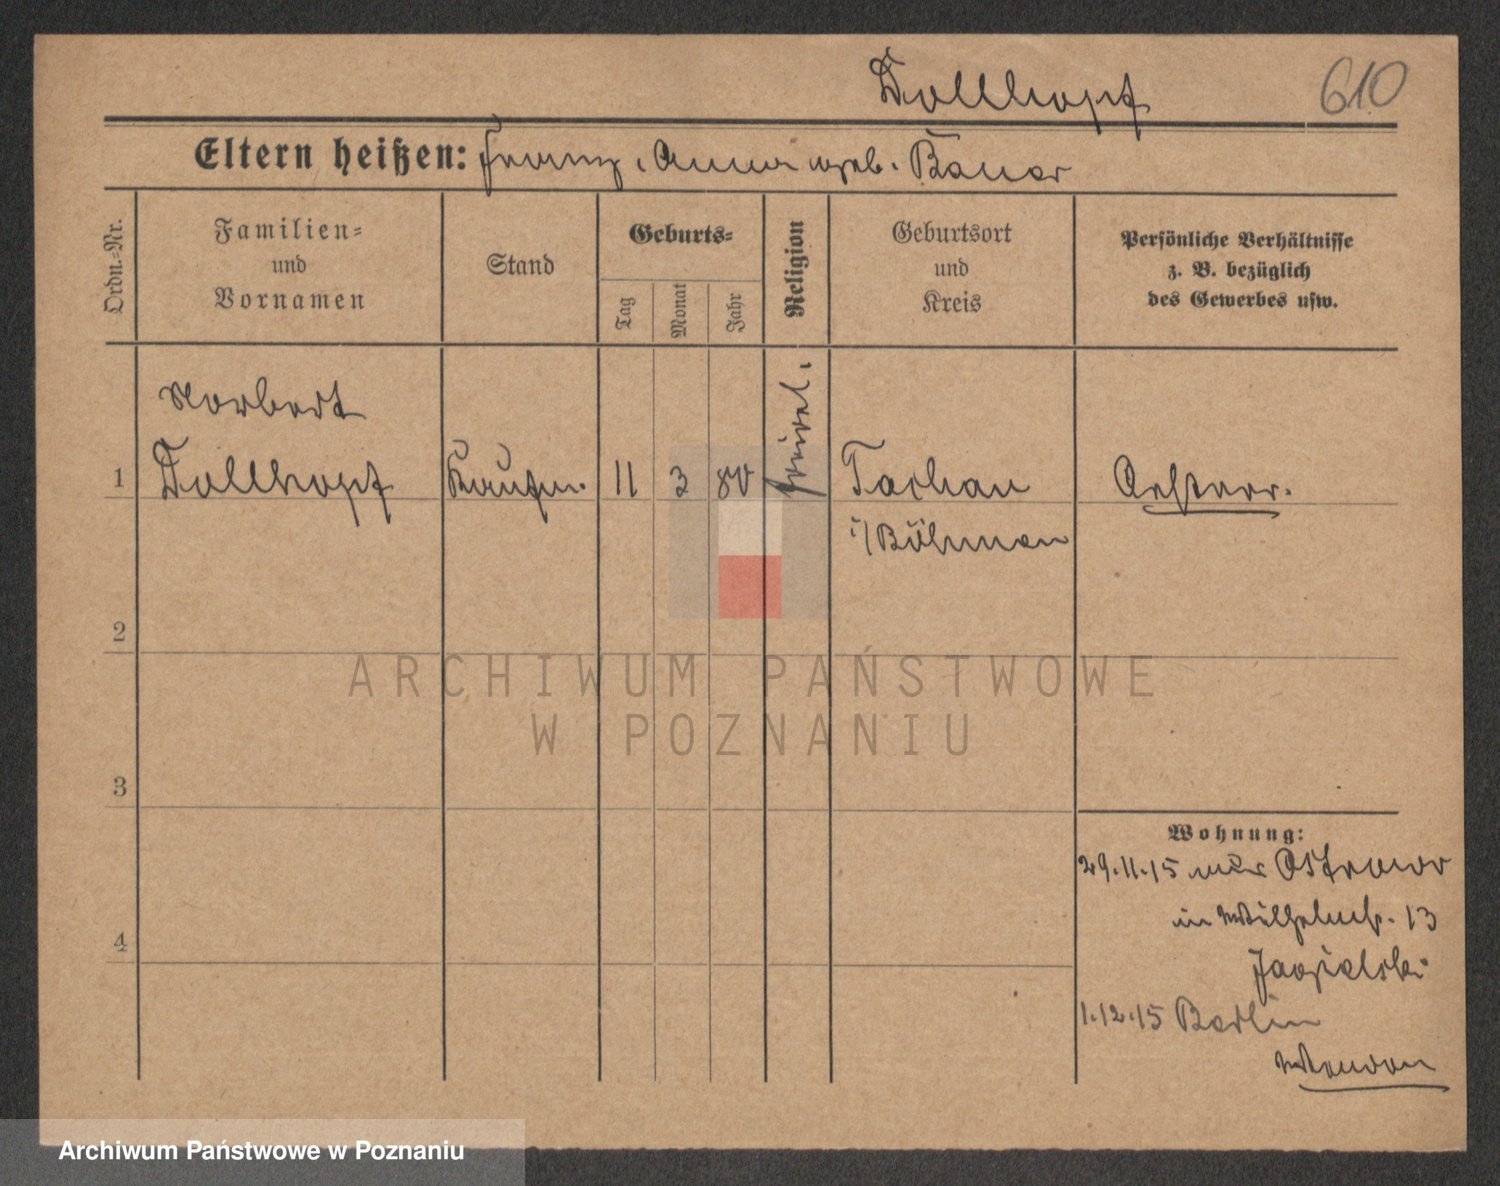 Dollhopf 610
Eltern heißen: Franz, Anna geb. Bauer
Ordn.=Nr.
Familien=
und
Vornamen
Stand
Geburts=
Tag
Monat
Jahr
Religion
Geburtsort
und
Kreis
Persönliche Verhältnisse
z. B. bezüglich
des Gewerbes usw.
Norbert
1 Dollhopf Kaufm. 11 3 80 Tachau Oesterr.
i/Böhmen
2
3
4
Wohnung:
29.11.15 aus Ostrowo
in Wilhelmstr. 13
1.12.15 Berlin
ARCHIWUM PAŃSTWOWE
W POZNANIU
Archiwum Państwowe w Poznaniu